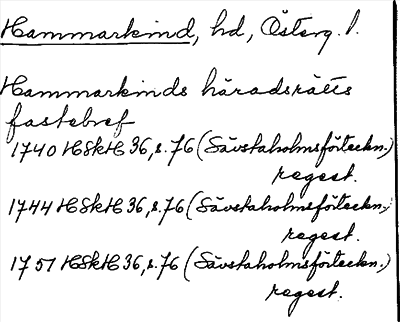 Hammarkind, hd, Österg. l.
Hammarkinds häradsrätts
fastebref
1740 HSkH 36, s. 76 (Sävstaholmsförteckn.)
regest.
1744 HSkH 36, s. 76 (Sävstaholmsförteckn.)
regest.
1751 HSkH 36, s. 76 (Sävstaholmsförteckn.)
regest.